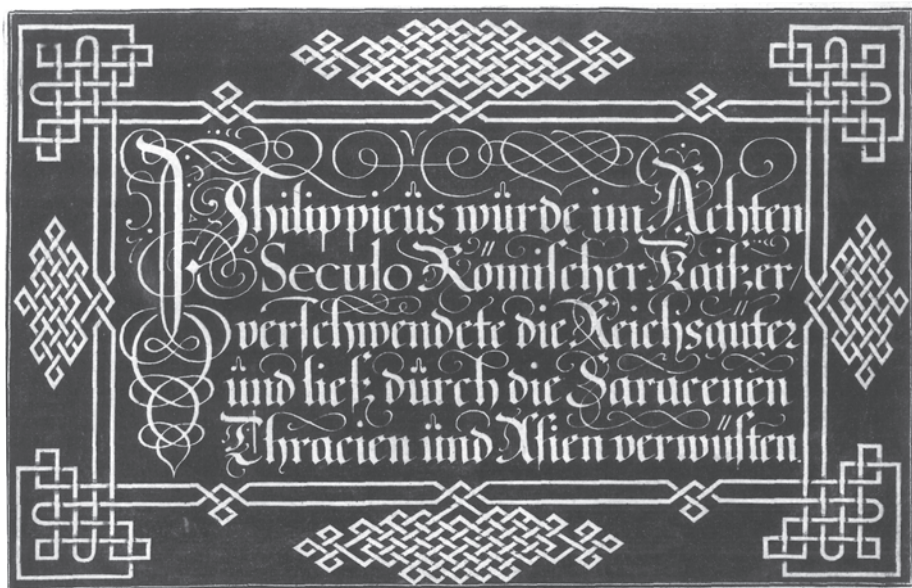 Philippicüs würde im Achten
Seculo Römiſcher Kaiſer/
verſchwendete die Reichsgüter
ünd lieſz dürch die Saracenen
Thracien ünd Aſien verwüſten.